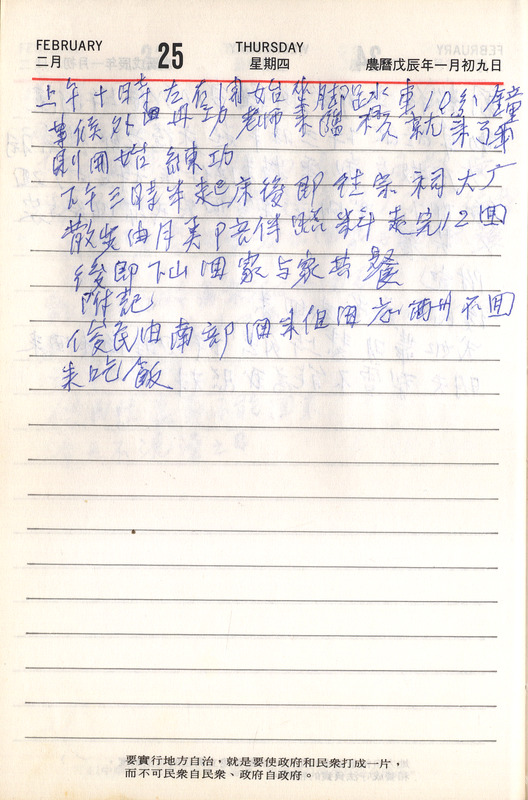 FEBRUARY
二月
25
THURSDAY
星期四
農曆戊辰年一月初九日
上午十時左右開始坐脚踏水車10分鐘
等候外丹功老師來臨 就來了
則開始練功
下午三時半起床後即往宗祠大广
散步由月美陪伴 走完12囬
後即下山囬家与家共餐
附記
俊民由南部囬來但因 不囬
來吃飯
要實行地方自治，就是要使政府和民衆打成一片，
而不可民衆自民衆、政府自政府。